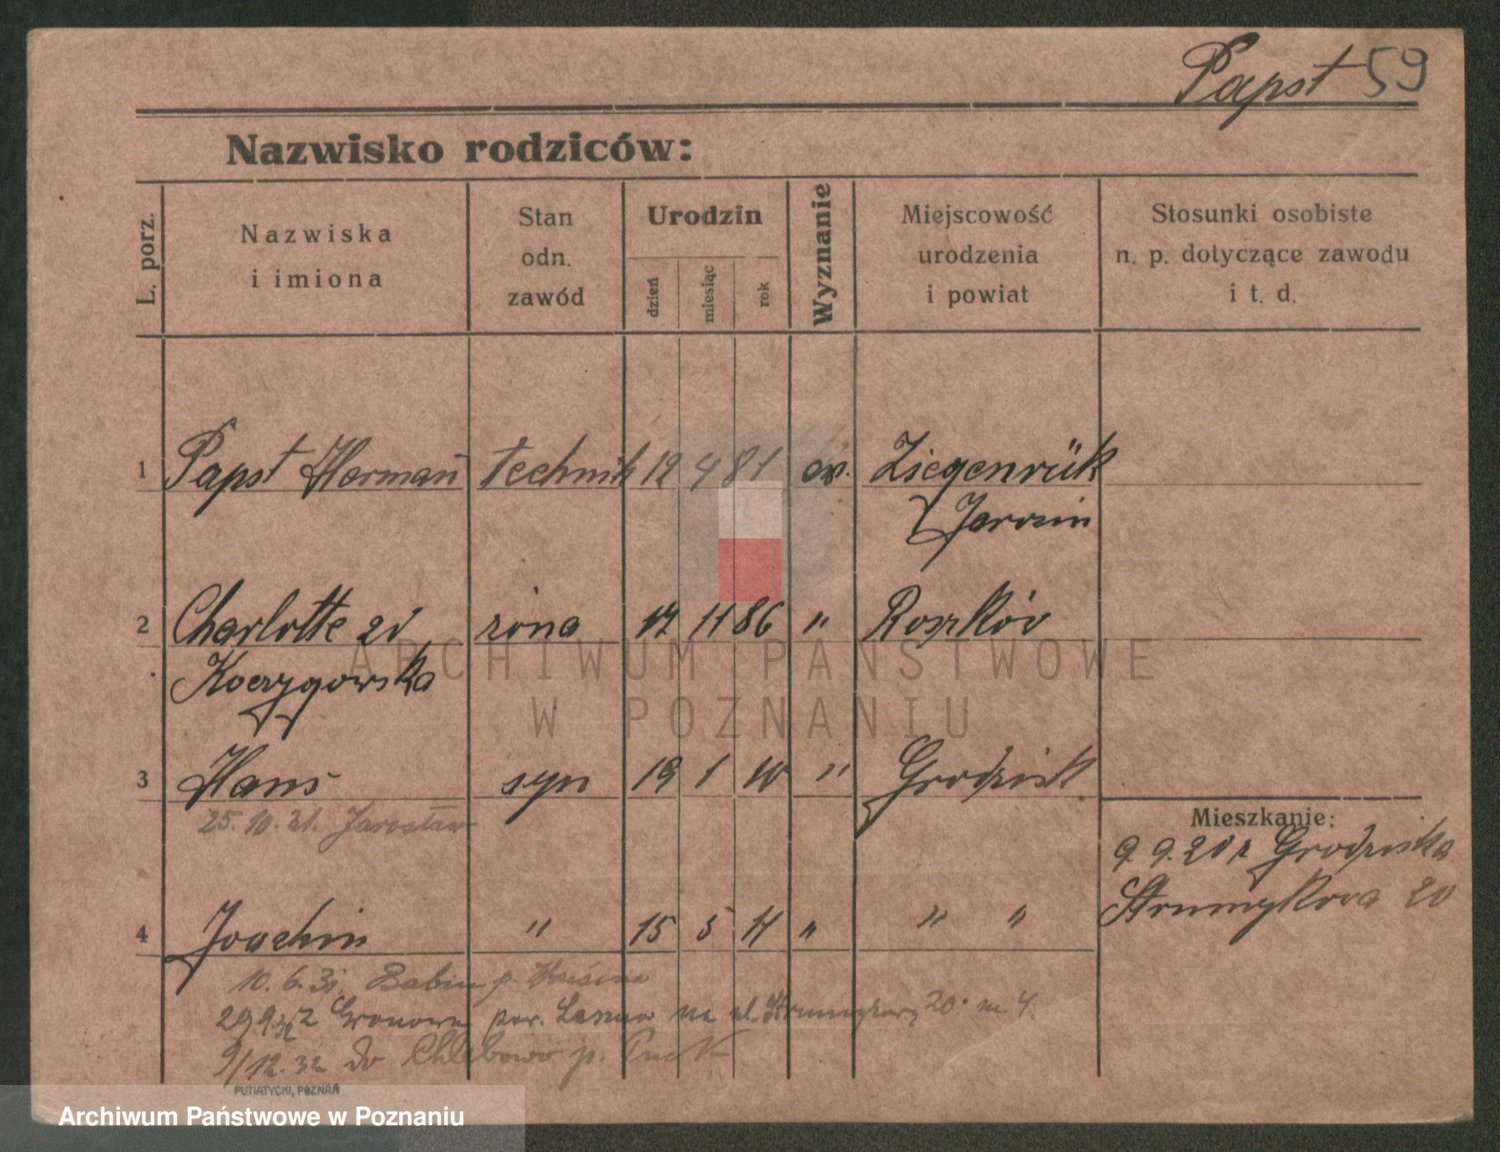 Papst 59
Nazwisko rodziców:
L. porz.
Nazwiska
i imiona
Stan
odn.
zawód
Urodzin
dzień
miesiąc
rok
Wyznanie
Miejscowość
urodzenia
i powiat
Stosunki osobiste
n. p. dotyczące zawodu
i t. d.
1 Papst Hermañ technik 12 4 81 ew. Ziegenrük
Jarocin
2 Charlotte zd żona 17 11 86 " Roszków
3 Hans syn 19 1 10 " Grodzisk
25.10.31. Jarosław
Mieszkanie:
9.9.20 r Grodziska
Strumykowa 20
4 Joachim " 15 5 11 " " "
10.6.31. Babin p.
Gronowo pow. Leszno na ul. Strumykową 20 m 4.
9/12.32 do Chlebowo p.
PUTIATYCKI, POZNAŃ
ARCHIWUM PAŃSTWOWE
W POZNANIU
Archiwum Państwowe w Poznaniu